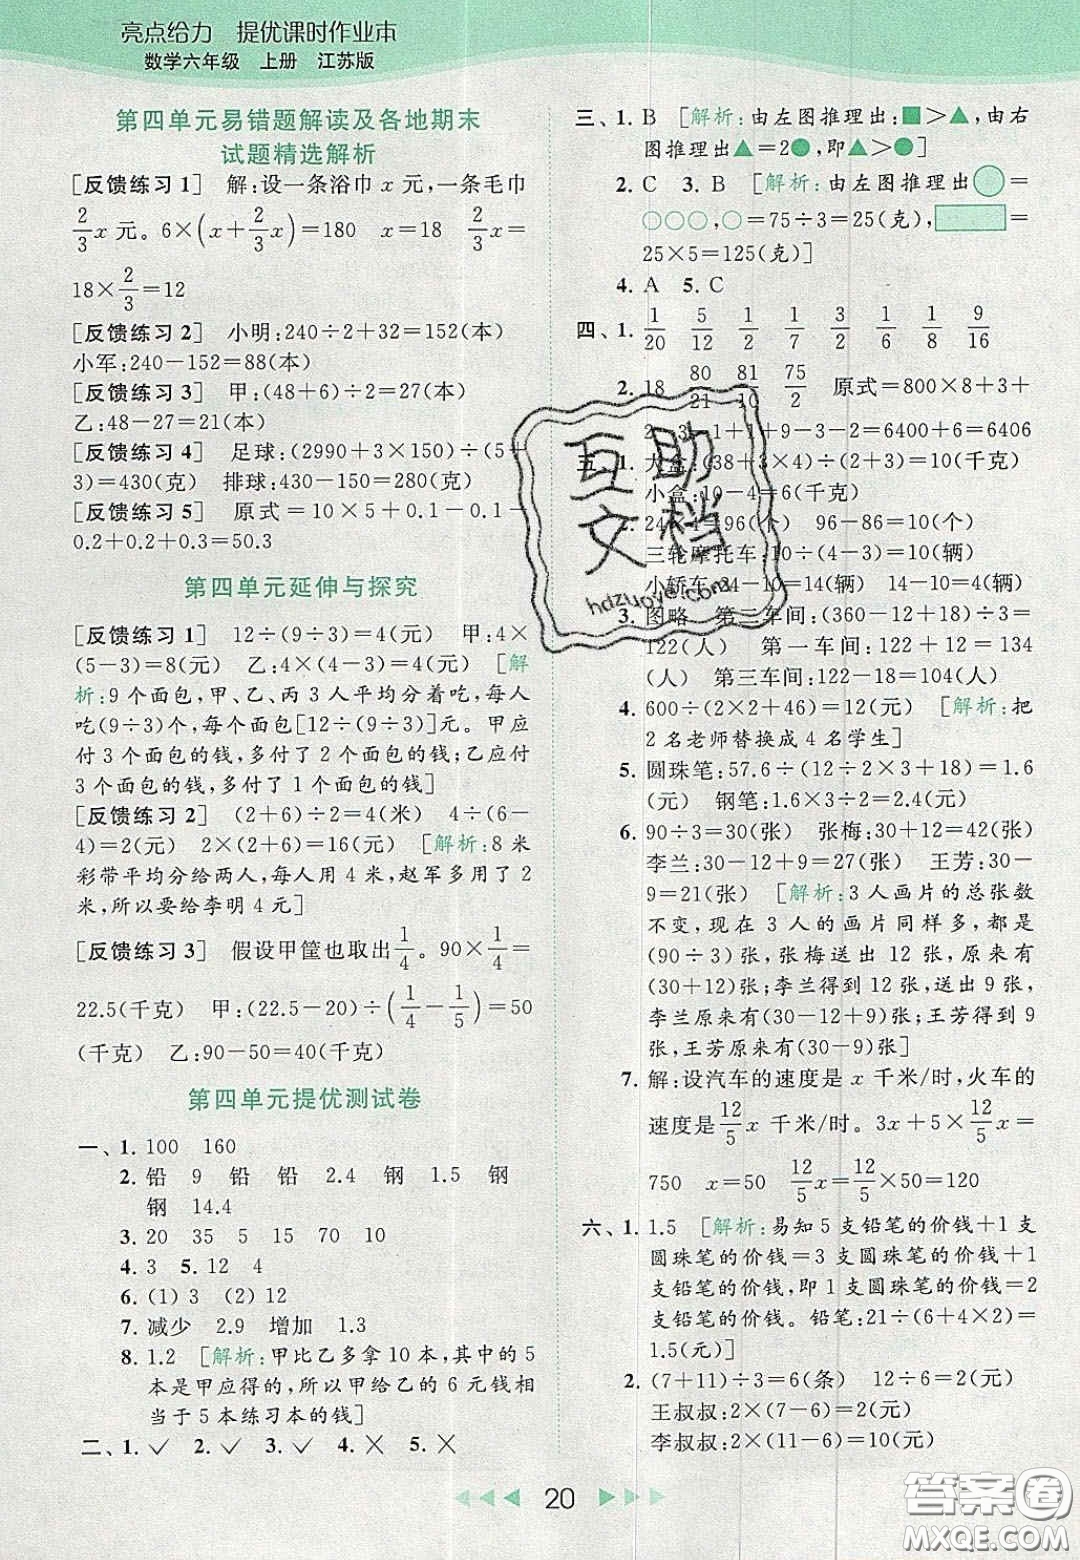 亮点给力 提优课时作业本
数学六年级 上册 江苏版
第四单元易错题解读及各地期末
试题精选解析
[反馈练习 1] 解:设一条浴巾 x 元,一条毛巾
2/3 x 元。6×(x+2/3 x)=180 x=18 2/3 x=
18×2/3=12
[反馈练习 2] 小明:240÷2+32=152(本)
小军:240-152=88(本)
[反馈练习 3] 甲:(48+6)÷2=27(本)
乙:48-27=21(本)
[反馈练习 4] 足球:(2990+3×150)÷(5+
3)=430(克) 排球:430-150=280(克)
[反馈练习 5] 原式=10×5+0.1-0.1-
0.2+0.2+0.3=50.3
第四单元延伸与探究
[反馈练习 1] 12÷(9÷3)=4(元) 甲:4×
(5-3)=8(元) 乙:4×(4-3)=4(元) [解
析:9 个面包,甲、乙、丙 3 人平均分着吃,每人
吃(9÷3)个,每个面包[12÷(9÷3)]元。甲应
付 3 个面包的钱,多付了 2 个面包的钱;乙应付
3 个面包的钱,多付了 1 个面包的钱]
[反馈练习 2] (2+6)÷2=4(米) 4÷(6-
4)=2(元) 2×(2+6)=16(元) [解析:8 米
彩带平均分给两人,每人用 4 米,赵军多用了 2
米,所以要给李明 4 元]
[反馈练习 3] 假设甲筐也取出1/4。90×1/4=
22.5(千克) 甲:(22.5-20)÷(1/4-1/5)=50
(千克) 乙:90-50=40(千克)
第四单元提优测试卷
一、1. 100 160
2. 铅 9 铅 铅 2.4 钢 1.5 钢
钢 14.4
3. 20 35 5 15 10 70
4. 3 5. 12 4
6. (1) 3 (2) 12
7. 减少 2.9 增加 1.3
8. 1.2 [解析:甲比乙多拿 10 本,其中的 5
本是甲应得的,所以甲给乙的 6 元钱相
当于 5 本练习本的钱]
二、1. ✓ 2. ✓ 3. ✓ 4. ✕ 5. ✕
三、1. B [解析:由左图推理出:■>▲,由右
图推理出▲=2●,即▲>●]
2. C 3. B [解析:由左图推理出○=
○○○,○=75÷3=25(克),▭=
25×5=125(克)]
4. A 5. C
四、1. 1/20 5/12 1/2 1/7 3/2 1/6 1/8 9/16
2. 18 80/21 81/10 75/2 原式=800×8+3+
1+1+9-3-2=6400+6=6406
1. 大盒:(38+3×4)÷(3+2)=10(千克)
小盒:10-4=6(千克)
2. 24×4=96(个) 96-86=10(个)
三轮摩托车:10÷(4-3)=10(辆)
小轿车:24-10=14(辆) 14-10=4(辆)
3. 图略 第二车间:(360-12+18)÷3=
122(人) 第一车间:122+12=134
(人) 第三车间:122-18=104(人)
4. 600÷(2×2+46)=12(元) [解析:把
2 名老师替换成 4 名学生]
5. 圆珠笔:57.6÷(12÷2×3+18)=1.6
(元) 钢笔:1.6×3÷2=2.4(元)
6. 90÷3=30(张) 张梅:30+12=42(张)
李兰:30-12+9=27(张) 王芳:30-
9=21(张) [解析:3 人画片的总张数
不变,现在 3 人的画片同样多,都是
(90÷3)张,张梅送出 12 张,原来有
(30+12)张;李兰得到 12 张,送出 9 张,
李兰原来有(30-12+9)张;王芳得到 9
张,王芳原来有(30-9)张]
7. 解:设汽车的速度是 x 千米/时,火车的
速度是12/5 x 千米/时。3x+5×12/5 x=
750 x=50 12/5 x=12/5×50=120
六、1. 1.5 [解析:易知 5 支铅笔的价钱+1 支
圆珠笔的价钱=3 支圆珠笔的价钱+1
支铅笔的价钱,即 1 支圆珠笔的价钱=2
支铅笔的价钱。铅笔:21÷(6+4×2)=
1.5(元)]
2. (7+11)÷3=6(条) 12÷6=2(元)
王叔叔:2×(7-6)=2(元)
李叔叔:2×(11-6)=10(元)
20
互助
文档
hdzuoye.com
答案圈
MXQE.COM